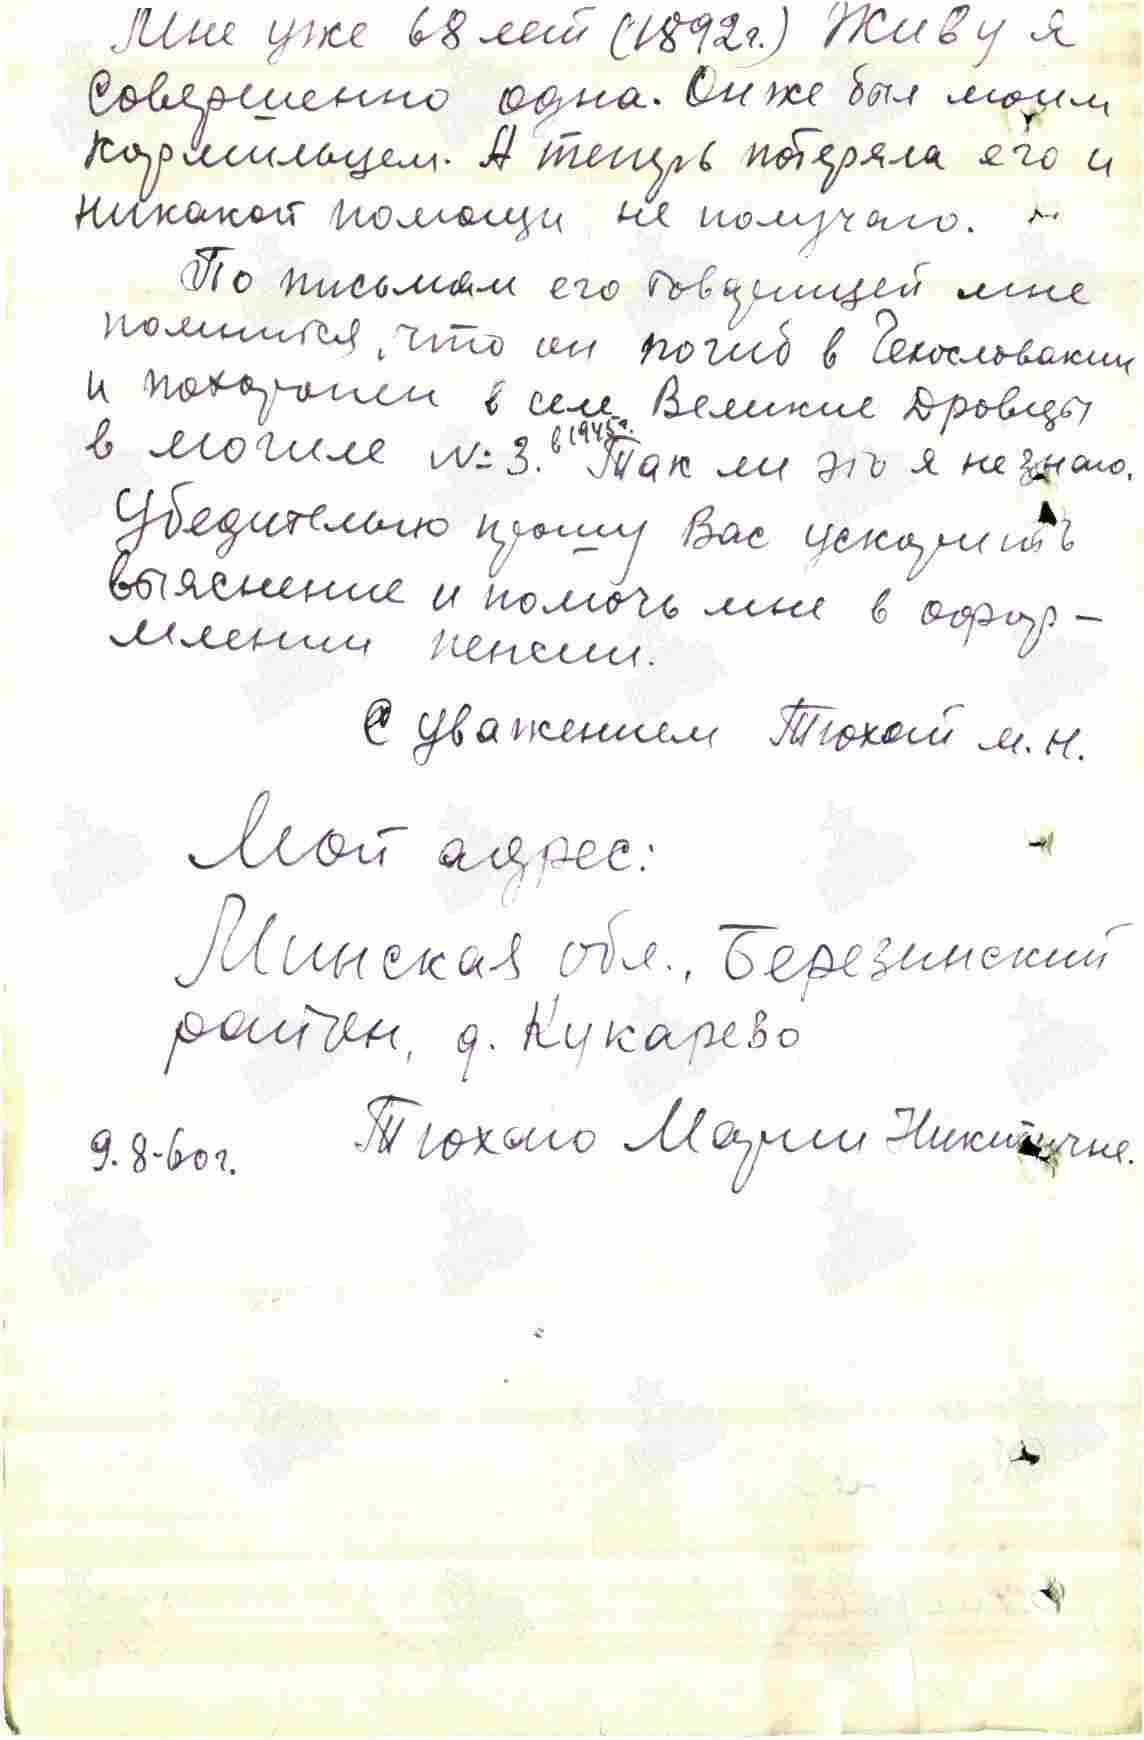 Мне уже 68 лет (1892 г.) Живу я
совершенно одна. Он же был моим
кормильцем. А теперь потеряла его и
никакой помощи не получаю.
По письмам его товарищей мне
помнится, что он погиб в Чехословакии
и похоронен в селе Великие Дровцы
в могиле №3. в 1945 г. Так ли это я не знаю.
Убедительно прошу Вас ускорить
выяснение и помочь мне в офор-
млении пенсии.
С уважением Тюхай М. Н.
Мой адрес:
Минская обл., Березинский
район, д. Кукарево
9.8-60 г. Тюхаю Марии Никитичне.